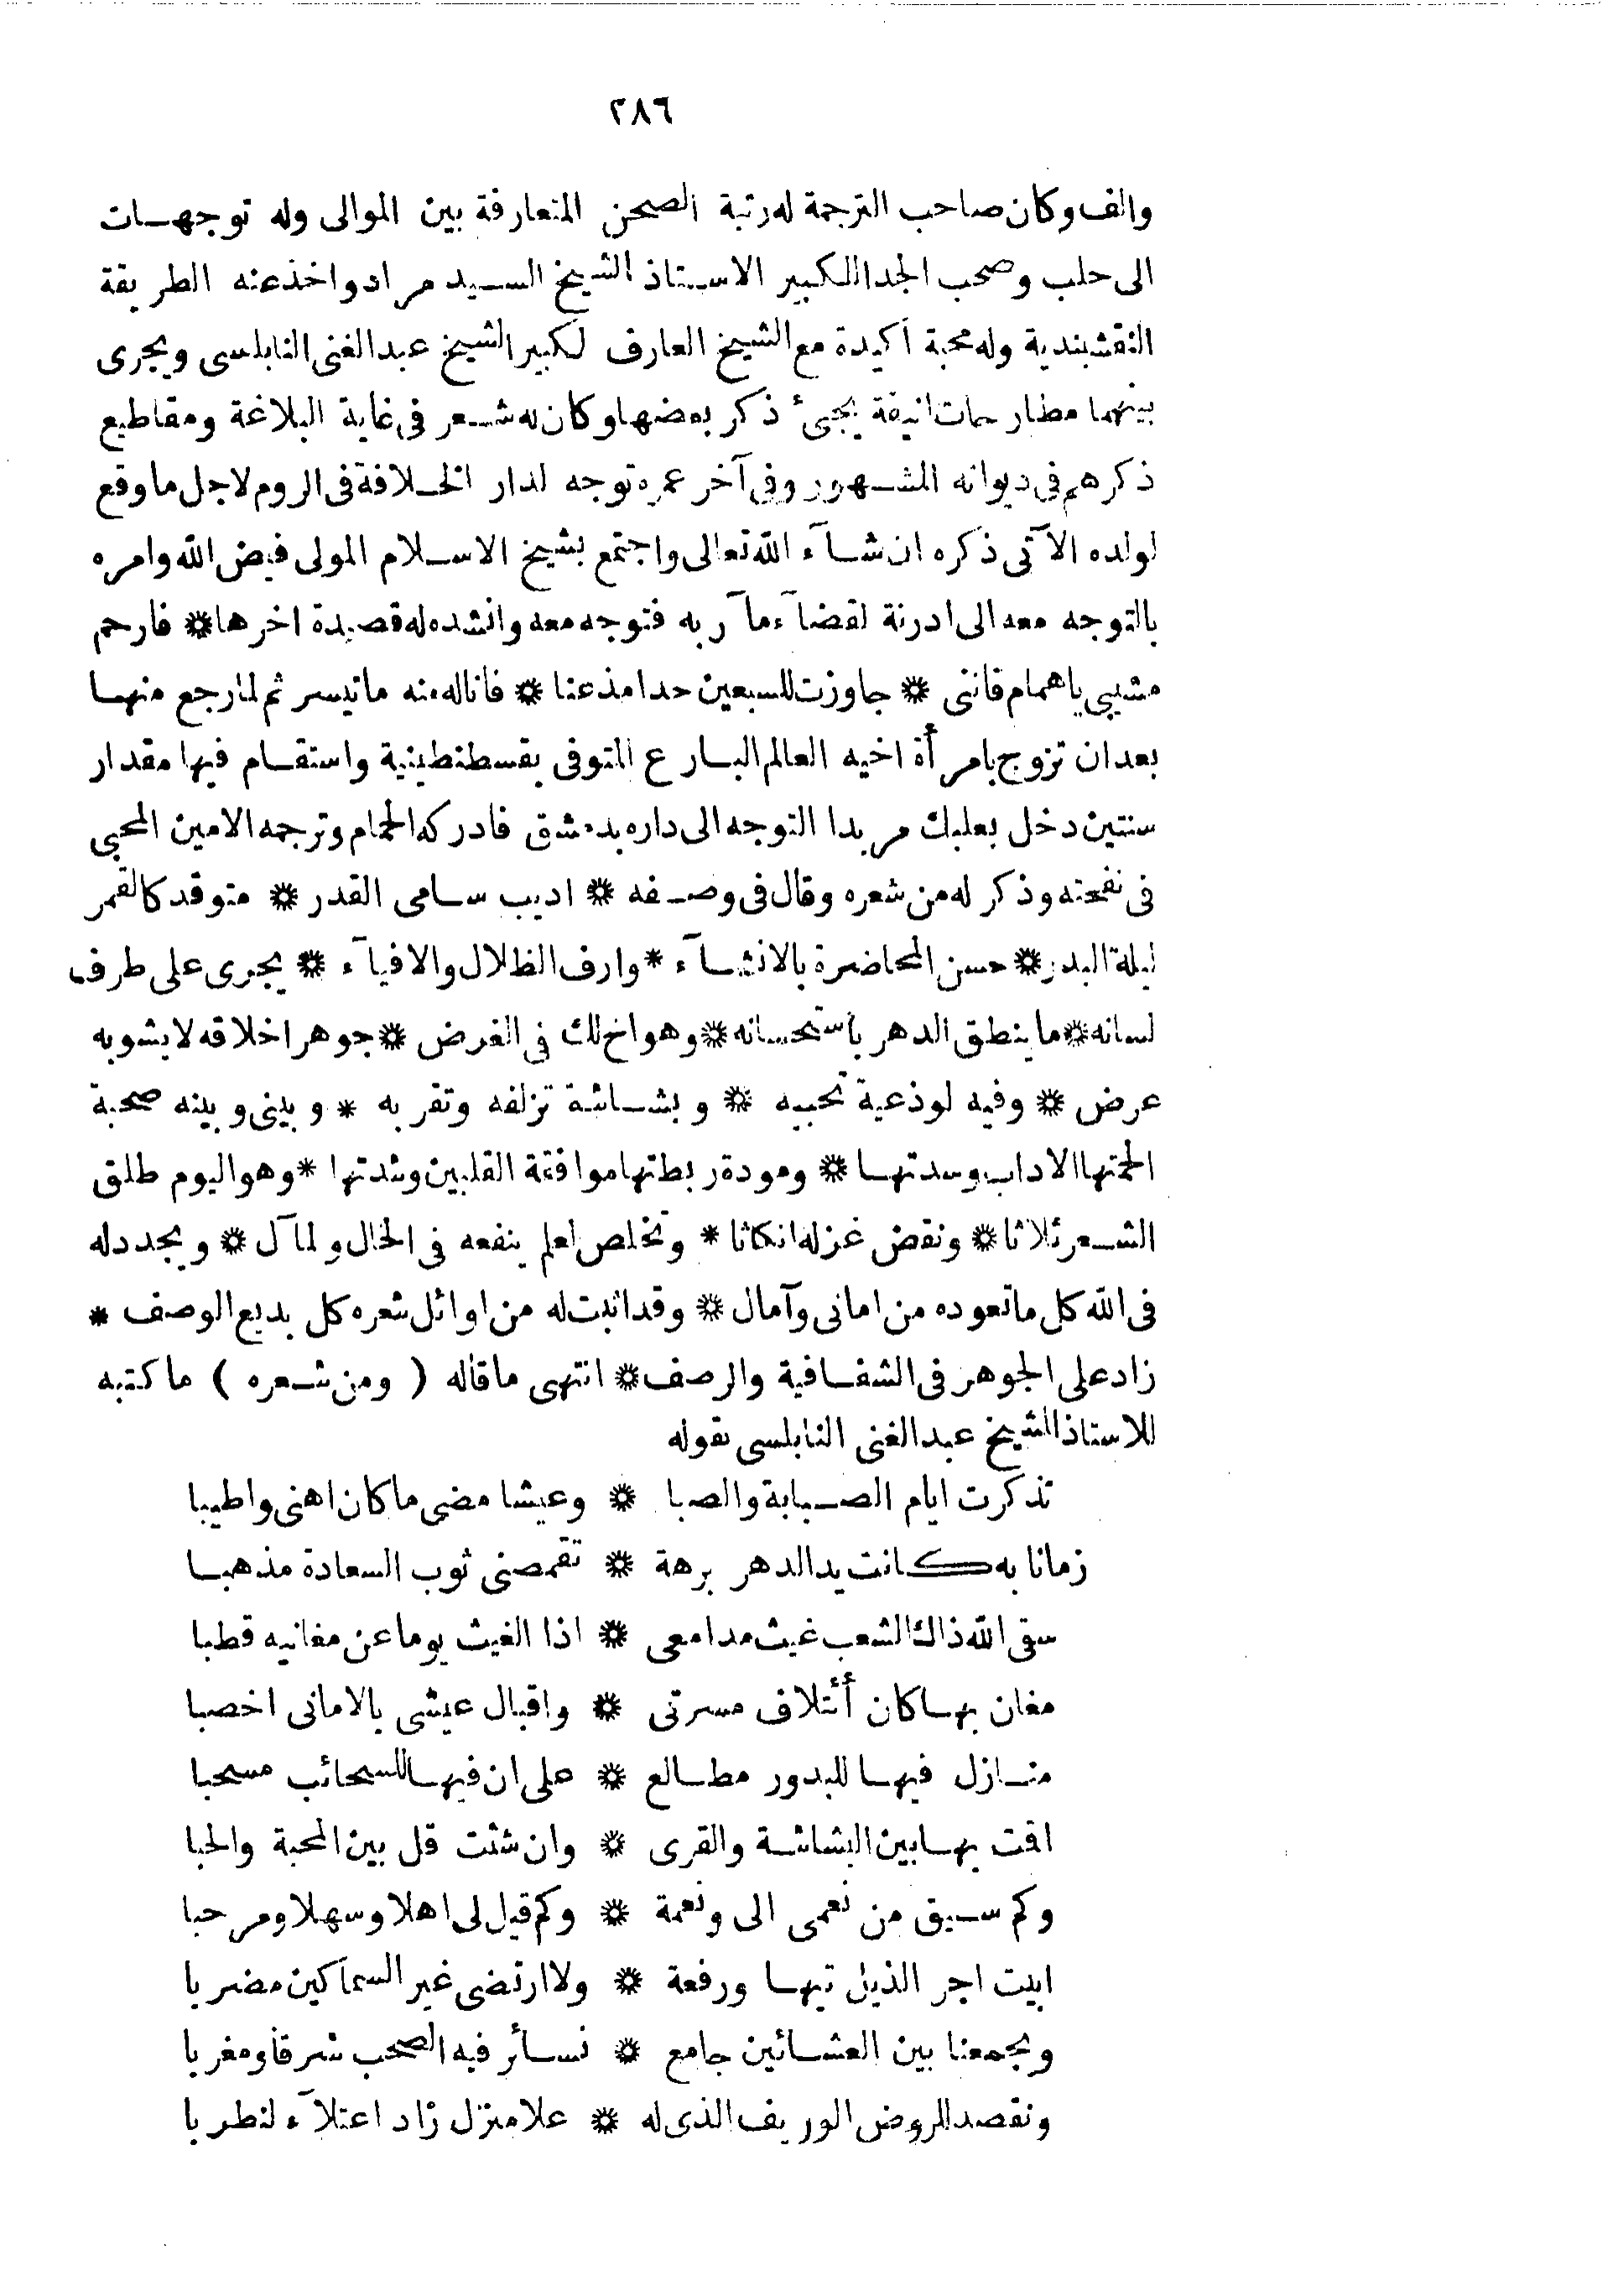 ٢٨٦
والف وكان صاحب الترجمة له رتبة الصحن المتعارفة بين الموالى وله توجهات
الى حلب وصحب الجد الكبير الاستاذ الشيخ السيد مراد واخذ عنه الطريقة
النقشبندية وله محبة اكيدة مع الشيخ العارف لكبير الشيخ عبد الغنى النابلسى ويجرى
بينهما مطارحات انيقة يجىء ذكر بعضها وكان له شعر فى غاية البلاغة ومقاطيع
ذكرهم فى ديوانه المشهور وفى آخر عمره توجه لدار الخلافة فى الروم لاجل ما وقع
لولده الآتى ذكره ان شآء الله تعالى واجتمع بشيخ الاسلام المولى فيض الله وامره
بالتوجه معه الى ادرنة لقضآء مآربه فتوجه معه وانشده له قصيدة اخرها * فارحم
مشيبى يا همام فاننى * جاوزت للسبعين حدا مذعنا * فاناله منه ما تيسر ثم لما رجع منها
بعد ان تزوج بامرأة اخيه العالم البارع المتوفى بقسطنطينية واستقام فيها مقدار
سنتين دخل بعلبك مريدا التوجه الى داره بدمشق فادركه الحمام وترجمه الامين المحبى
فى نفحته وذكر له من شعره وقال فى وصفه * اديب سامى القدر * متوقد كالقمر
ليلة البدر * حسن المحاضرة بالانشآء * وارف الظلال والافيآء * يجرى على طرف
لسانه * ما ينطق الدهر باستحسانه * وهو اخ لك فى الغرض * جوهر اخلاقه لا يشوبه
عرض * وفيه لوذعية تحببه * وبشاشة تزلفه وتقربه * وبينى وبينه صحبة
الحمتها الاداب وسدتها * ومودة ربطتها موافقة القلبين وشدتها * وهو اليوم طلق
الشعر ثلاثا * ونقض غزله انكاثا * وتخلص لعلم ينفعه فى الحال ولمآل * ويجدد له
فى الله كل ما تعوده من امانى وآمال * وقد اثبت له من اوائل شعره كل بديع الوصف *
زاد على الجوهر فى الشفافية والرصف * انتهى ما قاله ( ومن شعره ) ما كتبه
للاستاذ الشيخ عبد الغنى النابلسى بقوله
تذكرت ايام الصبابة والصبا * وعيشا مضى ما كان اهنى واطيبا
زمانا به كانت يد الدهر برهة * تقمصنى ثوب السعادة مذهبا
سقى الله ذاك الشعب غيث مدامعى * اذا الغيث يوما عن مغانيه قطبا
مغان بها كان أئتلاف مسرتى * واقبال عيشى بالامانى اخصبا
منازل فيها للبدور مطالع * على ان فيها للسحائب مسحبا
اقت بها بين البشاشة والقرى * وان شئت قل بين المحبة والحبا
وكم سيق من نعمى الى ونعمة * وكم قيل لى اهلا وسهلا ومرحبا
ابيت اجر الذيل تيها ورفعة * ولا ارتضى غير السماكين مضربا
ويجمعنا بين العشائين جامع * نسائر فيه الصحب شرقا ومغربا
ونقصد للروض الوريف الذى له * علا منزل زاد اعتلآء لنطربا